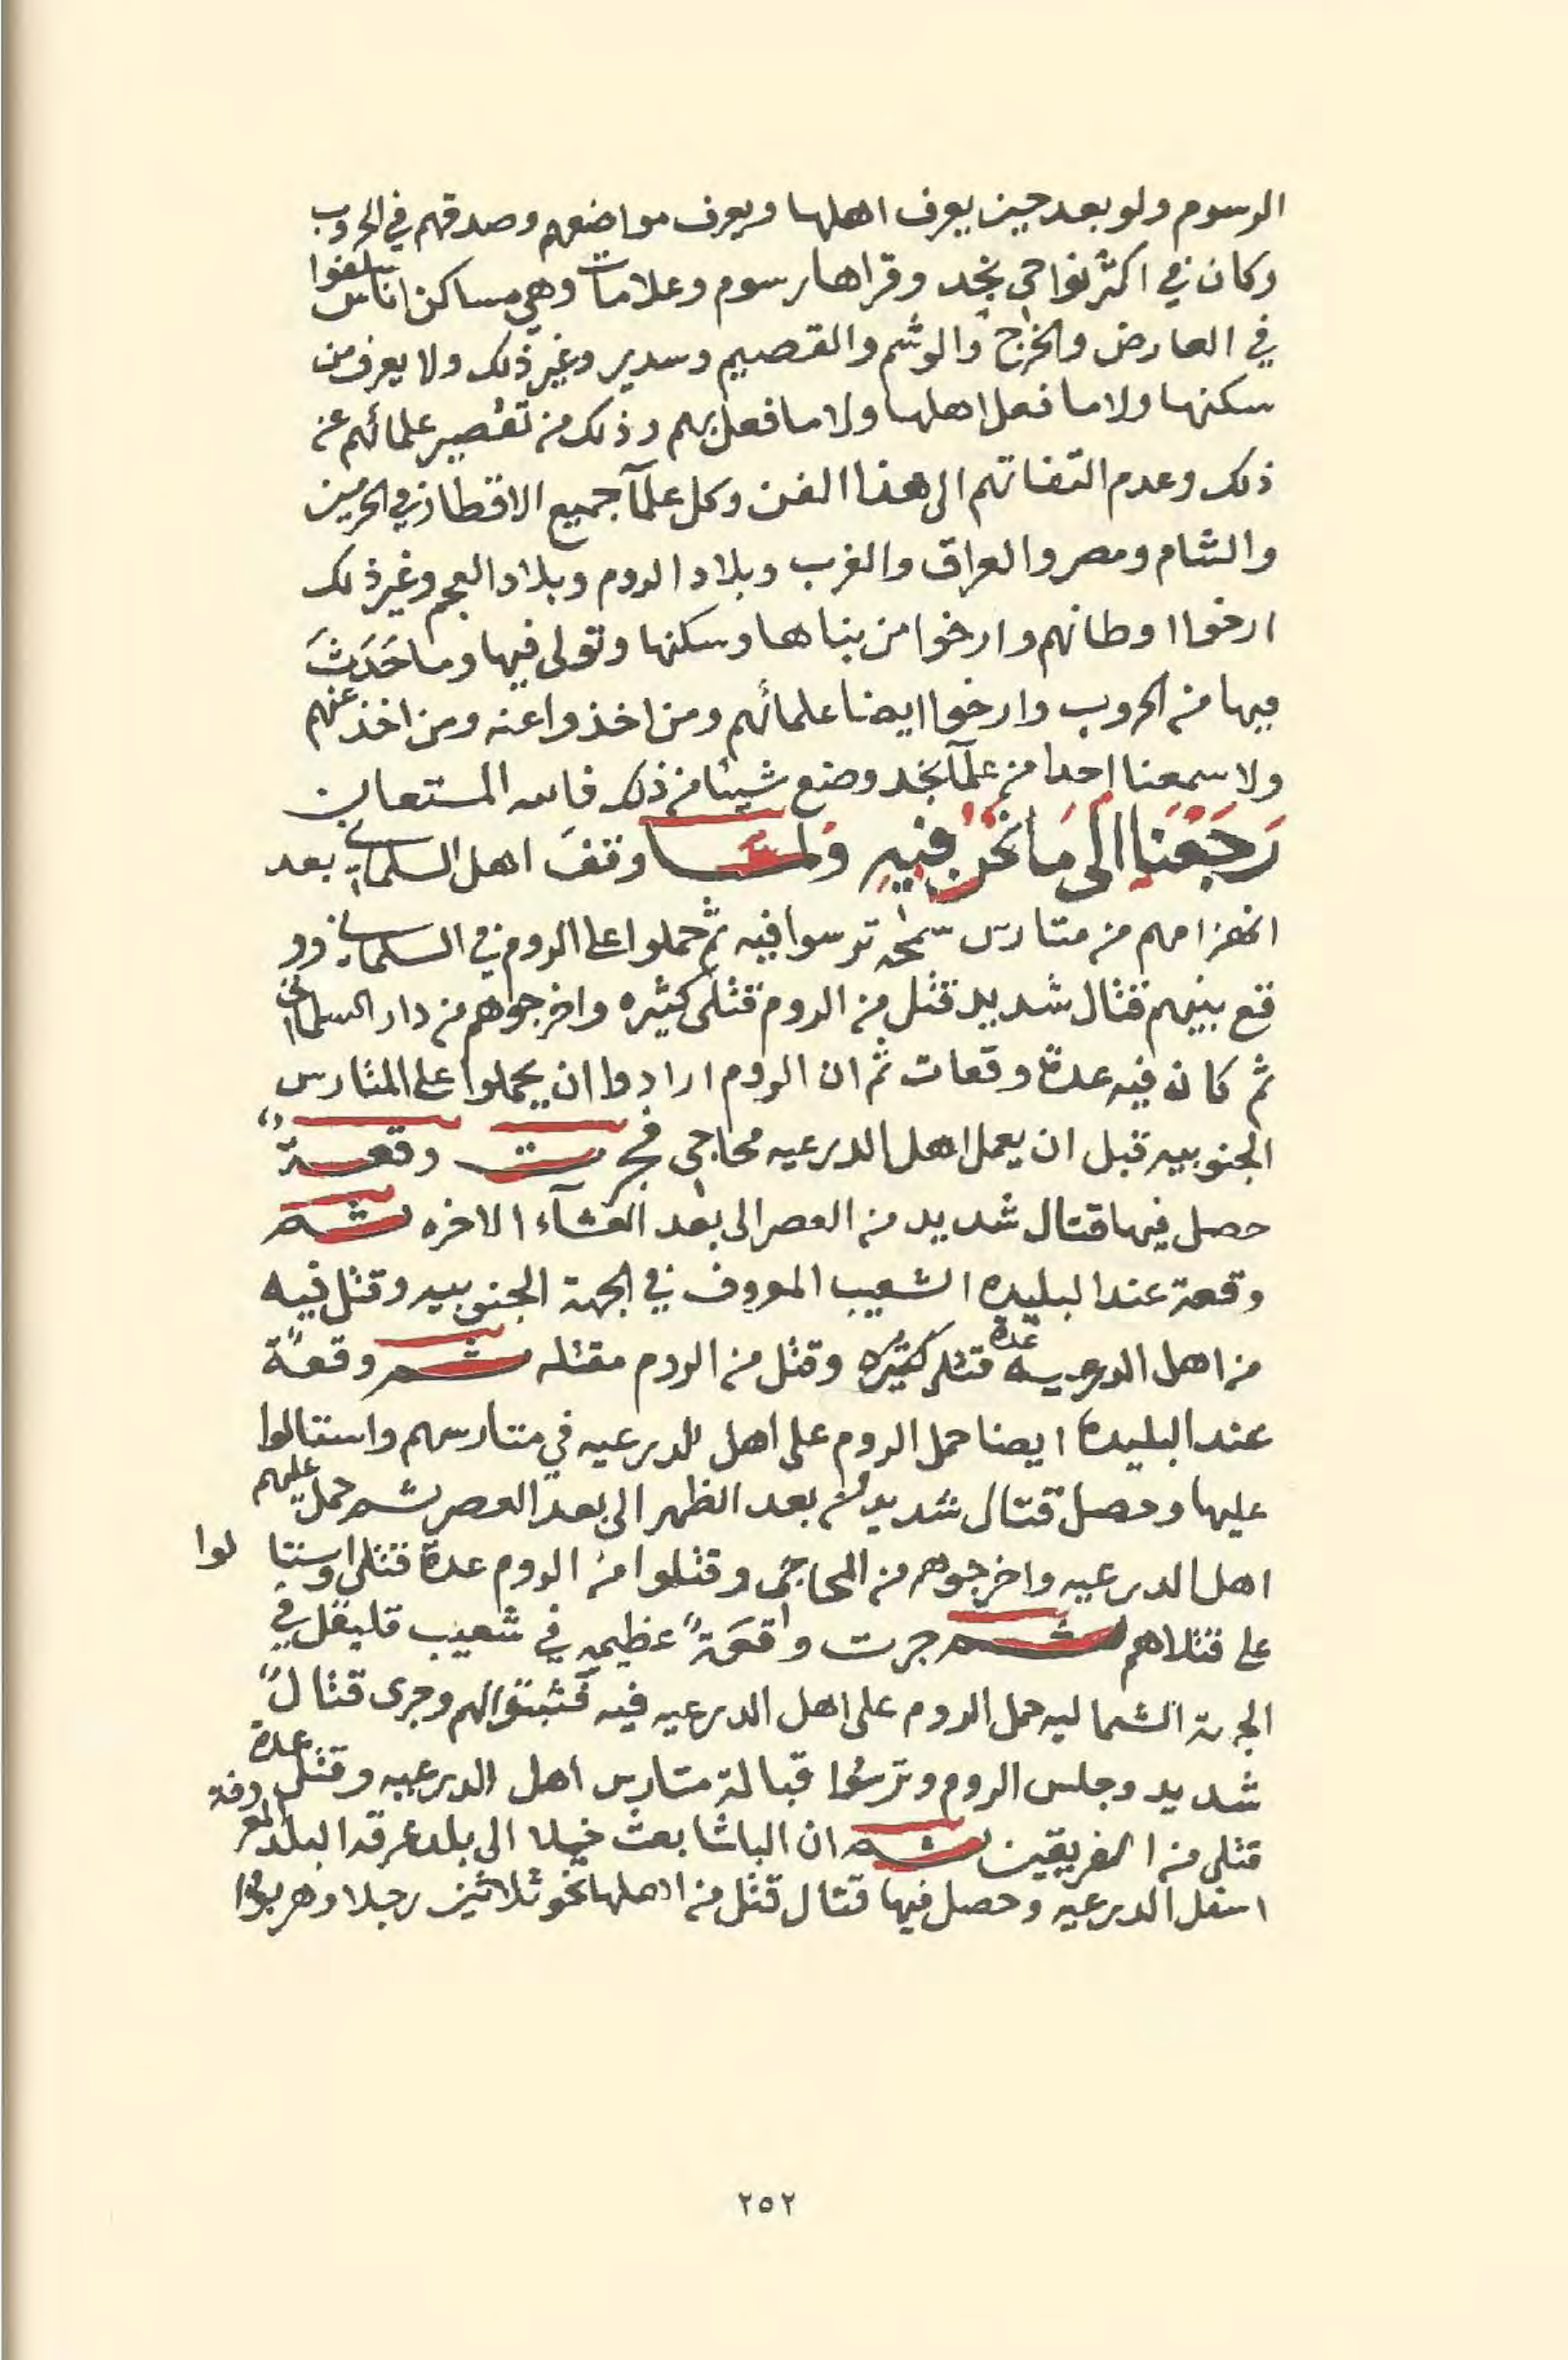 الرسوم ولو بعد حين يعرف اهلها ويعرف مواضعهم وصدقهم في الحروب
وكان في اكثر نواحي نجد وقراها رسوم وعلامات وهي مساكن اناس سلفوا
في العارض والخرج والوشم والقصيم وسدير وغير ذلك ولا يعرف من
سكنها ولا ما فعل اهلها ولا ما فعل بهم وذلك من تقصير علمائهم عن
ذلك وعدم التفاتهم الى هذا الفن وكل علمآ جميع الاقطار في الحرمين
والشام ومصر والعراق والغرب وبلاد الروم وبلاد العجم وغير ذلك
ارخوا اوطانهم وارخوا من بناها وسكنها وتولى فيها وما حَدَثَ
فيها من الحروب وارخوا ايضا علمائهم ومن اخذوا عنه ومن اخذ عنهم
ولا سمعنا احدا من علمآ نجد وضع شيئا من ذلك فالله المستعان
رَجَعْنَا الى مَا نَحْنُ فِيْهِ وَلمّا وقفَ اهل السلماني بعد
انهزامهم من متارس سمحه ترسوا فيه ثم حملوا على الروم في السلماني وو
قع بينهم قتال شديد قتل من الروم قتلى كثيره واخرجوهم من دار السلماني
ثم كان فيه عدة وقعات ثم ان الروم ارادوا ان يحملوا على المتارس
الجنوبيه قبل ان يعمل اهل الدرعيه محاجي فجرت وقعةً
حصل فيها قتال شديد من العصر الى بعد العشآء الاخره ثم
وقعة عند البليده الشعيب المعروف في الجهة الجنوبيه وقتل فيه
من اهل الدرعيه عدة قتلى كثيره وقتل من الروم مقتله ثم وقعةً
عند البليدة ايضا حمل الروم على اهل الدرعيه في متارسهم واستالوا
عليها وحصل قتال شديد من بعد الظهر الى بعد العصر ثم حمل عليهم
اهل الدرعيه واخرجوهم من المحاجي وقتلوا من الروم عدة قتلى واستالوا
على قتلاهم ثم جرت واقعَةً عظيمه في شعيب قليقل في
الجهة الشماليه حمل الروم على اهل الدرعيه فيه فثبتوا لهم وجرى قتالً
شديد وجلس الروم وترسوا قبالة متارس اهل الدرعيه وقتل عدة
قتلى من الفريقين ثم ان الباشا بعث خيلا الى بلد عرقه البلد المعروفة
اسفل الدرعيه وحصل فيها قتال قتل من اهلها نحو ثلاثين رجلا وهربوا
٢٥٢